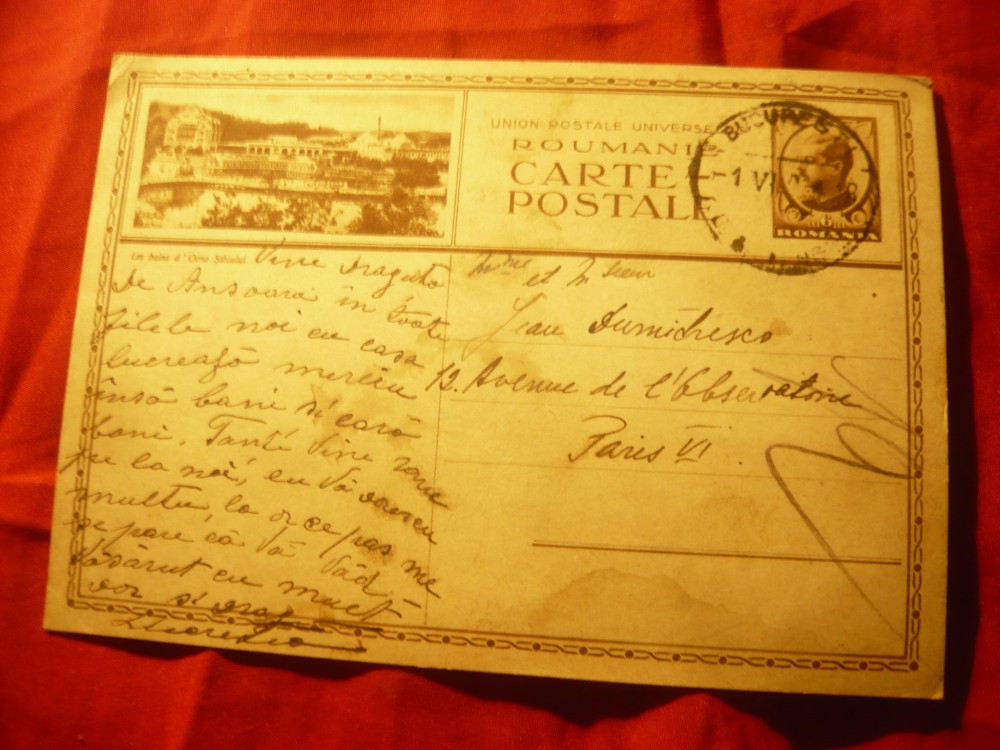 UNION POSTALE UNIVERSE
ROUMANIE
CARTE
POSTALE
BUCUREST
-1 VI
ROMANIA
Les bains d'Ocna Sibiului
Vine
de Ansoara în toate
zilele noi cu casa
lucrează mereu
însă bani și iară
bani. Tanti Vine
pe la noi, eu Vă
multu, la ce pas me
se pare că Vă Văd
Vă sărut cu mult
dor și drag
Mme et
Jean Dumitresco
12. Avenue de l'Observatoire
Paris VI